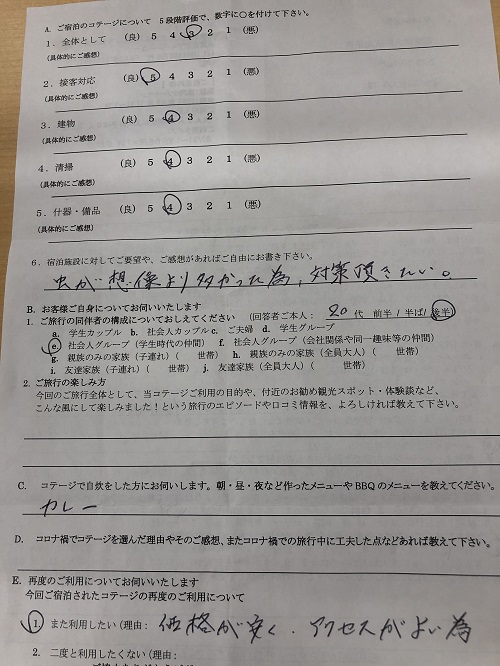 A. ご宿泊のコテージについて 5段階評価で、数字に○を付けて下さい。
1．全体として (良) 5 4 3 2 1 (悪)
(具体的にご感想)
2．接客対応 (良) 5 4 3 2 1 (悪)
(具体的にご感想)
3．建物 (良) 5 4 3 2 1 (悪)
(具体的にご感想)
4．清掃 (良) 5 4 3 2 1 (悪)
(具体的にご感想)
5．什器・備品 (良) 5 4 3 2 1 (悪)
(具体的にご感想)
6．宿泊施設に対してご要望や、ご感想があればご自由にお書き下さい。
虫が想像より多かった為，対策頂きたい。
B. お客様ご自身についてお伺いいたします
1. ご旅行の同伴者の構成についておしえてください (回答者ご本人： 20 代 前半 / 半ば / 後半)
a. 学生カップル b. 社会人カップル c. ご夫婦 d. 学生グループ
e. 社会人グループ (学生時代の仲間) f. 社会人グループ (会社関係や同一趣味等の仲間)
g. 親族のみの家族 (子連れ) ( 世帯) h. 親族のみの家族 (全員大人) ( 世帯)
i. 友達家族 (子連れ) ( 世帯) j. 友達家族 (全員大人) ( 世帯)
2. ご旅行の楽しみ方
今回のご旅行全体として、当コテージご利用の目的や、付近のお勧め観光スポット・体験談など、
こんな風にして楽しみました！という旅行のエピソードや口コミ情報を、よろしければ教えて下さい。
C. コテージで自炊をした方にお伺いします。朝・昼・夜など作ったメニューやBBQのメニューを教えてください。
カレー
D. コロナ禍でコテージを選んだ理由やそのご感想、またコロナ禍での旅行中に工夫した点などあれば教えて下さい。
E. 再度のご利用についてお伺いいたします
今回ご宿泊されたコテージの再度のご利用について
1. また利用したい (理由： 価格が安く、アクセスがよい為
2. 二度と利用したくない (理由：